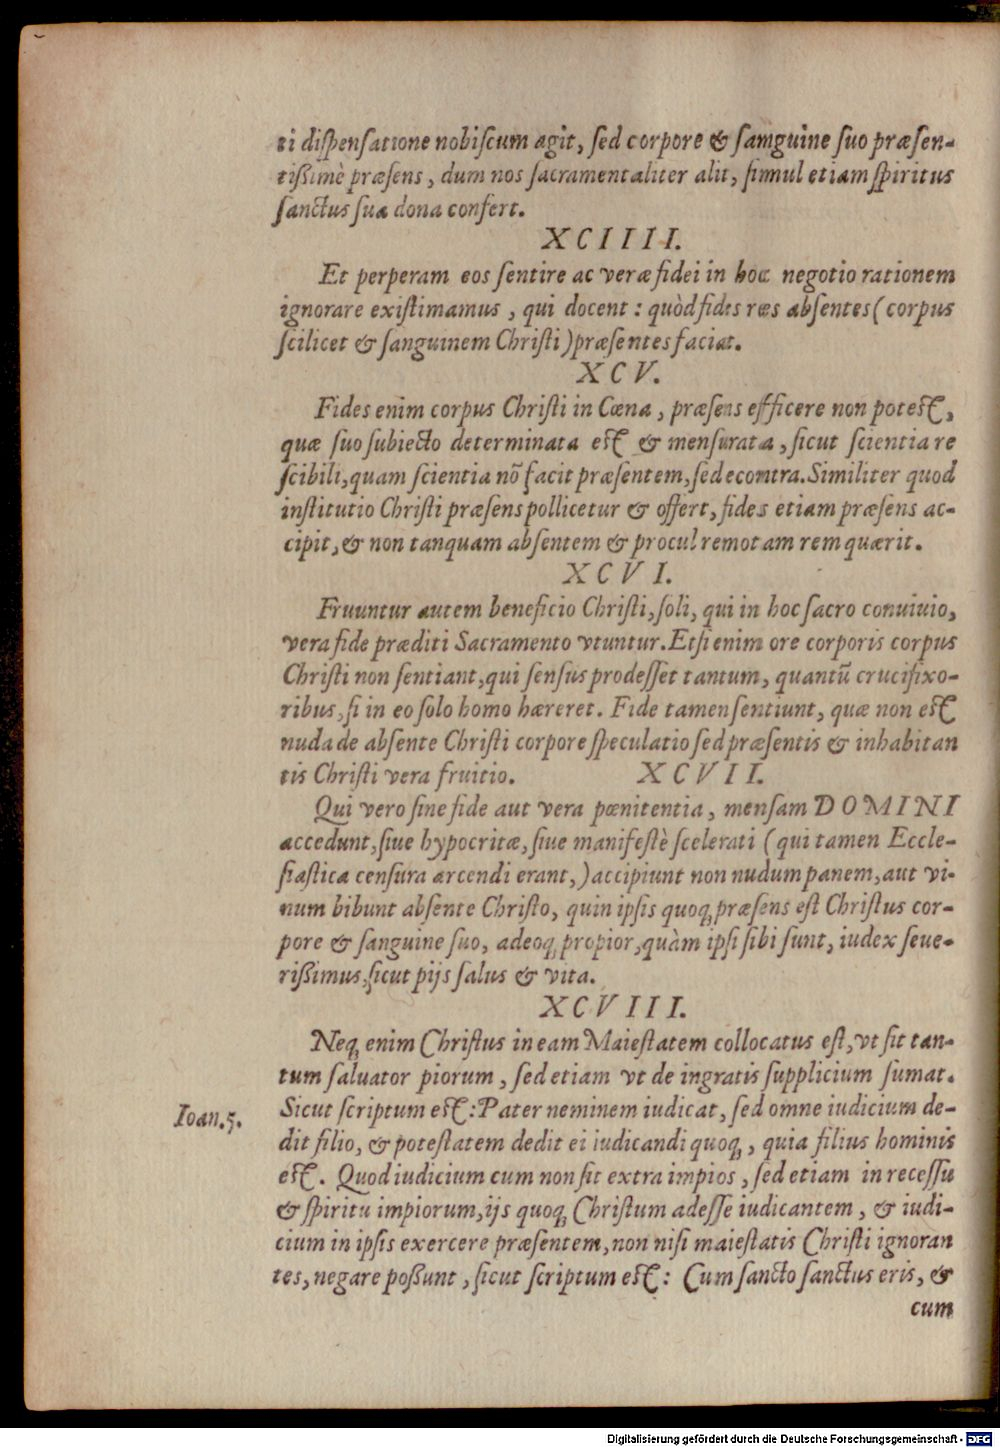 ti diſpenſatione nobiſcum agit, ſed corpore & ſanguine ſuo præſen-
tißimè præſens, dum nos ſacramentaliter alit, ſimul etiam ſpiritus
ſanctus ſua dona confert.
XCIIII.
Et perperam eos ſentire ac veræ fidei in hoc negotio rationem
ignorare exiſtimamus, qui docent: quòd fides res abſentes (corpus
ſcilicet & ſanguinem Chriſti) præſentes faciat.
XCV.
Fides enim corpus Chriſti in Cœna, præſens efficere non poteſt,
quæ ſuo ſubiecto determinata eſt & menſurata, ſicut ſcientia re
ſcibili, quam ſcientia nõ facit præſentem, ſed econtra. Similiter quod
inſtitutio Chriſti præſens pollicetur & offert, fides etiam præſens ac-
cipit, & non tanquam abſentem & procul remotam rem quærit.
XCVI.
Fruuntur autem beneficio Chriſti, ſoli, qui in hoc ſacro conuiuio,
vera fide præditi Sacramento vtuntur. Etſi enim ore corporis corpus
Chriſti non ſentiant, qui ſenſus prodeſſet tantum, quantũ crucifixo-
ribus, ſi in eo ſolo homo hæreret. Fide tamen ſentiunt, quæ non eſt
nuda de abſente Chriſti corpore ſpeculatio ſed præſentis & inhabitan
tis Chriſti vera fruitio. XCVII.
Qui vero ſine fide aut vera pœnitentia, menſam DOMINI
accedunt, ſiue hypocritæ, ſiue manifeſtè ſcelerati (qui tamen Eccle-
ſiaſtica cenſura arcendi erant,) accipiunt non nudum panem, aut vi-
num bibunt abſente Chriſto, quin ipſis quoq; præſens eſt Chriſtus cor-
pore & ſanguine ſuo, adeoq; propior, quàm ipſi ſibi ſunt, iudex ſeue-
rißimus, ſicut pijs ſalus & vita.
XCVIII.
Neq; enim Chriſtus in eam Maieſtatem collocatus eſt, vt ſit tan-
tum ſaluator piorum, ſed etiam vt de ingratis ſupplicium ſumat.
Ioan. 5.
Sicut ſcriptum eſt: Pater neminem iudicat, ſed omne iudicium de-
dit filio, & poteſtatem dedit ei iudicandi quoq;, quia filius hominis
eſt. Quod iudicium cum non ſit extra impios, ſed etiam in receſſu
& ſpiritu impiorum, ijs quoq; Chriſtum adeſſe iudicantem, & iudi-
cium in ipſis exercere præſentem, non niſi maieſtatis Chriſti ignoran
tes, negare poßunt, ſicut ſcriptum eſt: Cum ſancto ſanctus eris, &
cum
Digitalisierung gefördert durch die Deutsche Forschungsgemeinschaft - DFG